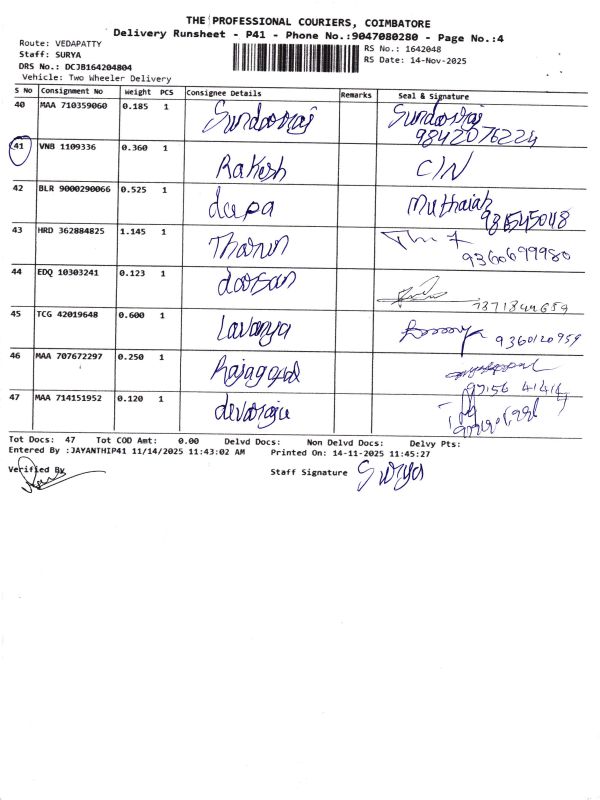 THE PROFESSIONAL COURIERS, COIMBATORE
Delivery Runsheet - P41 - Phone No.:9047080280 - Page No.:4
Route: VEDAPATTY
RS No.: 1642048
Staff: SURYA
RS Date: 14-Nov-2025
DRS No.: DCJB164204804
Vehicle: Two Wheeler Delivery
S No Consignment No Weight PCS Consignee Details Remarks Seal & Signature
40 MAA 710359060 0.185 1 Sundarraj Sundarraj
9842076224
41 VNB 1109336 0.360 1 Rakesh C/N
42 BLR 9000290066 0.525 1 deepa Muthaiah
43 HRD 362884825 1.145 1 Tharun
9360699980
44 EDQ 10303241 0.123 1
45 TCG 42019648 0.600 1 Lavanya 9360120959
46 MAA 707672297 0.250 1 Rajagopal
47 MAA 714151952 0.120 1 devaraju
Tot Docs: 47 Tot COD Amt: 0.00 Delvd Docs: Non Delvd Docs: Delvy Pts:
Entered By :JAYANTHIP41 11/14/2025 11:43:02 AM Printed On: 14-11-2025 11:45:27
Verified By Staff Signature Surya